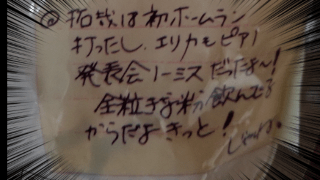 @拓哉は初ホームラン
打ったし、エリカもピアノ
発表会ノーミスだったよ〜!
全粒子粉飲んでる
からだよきっと!
じゃね。